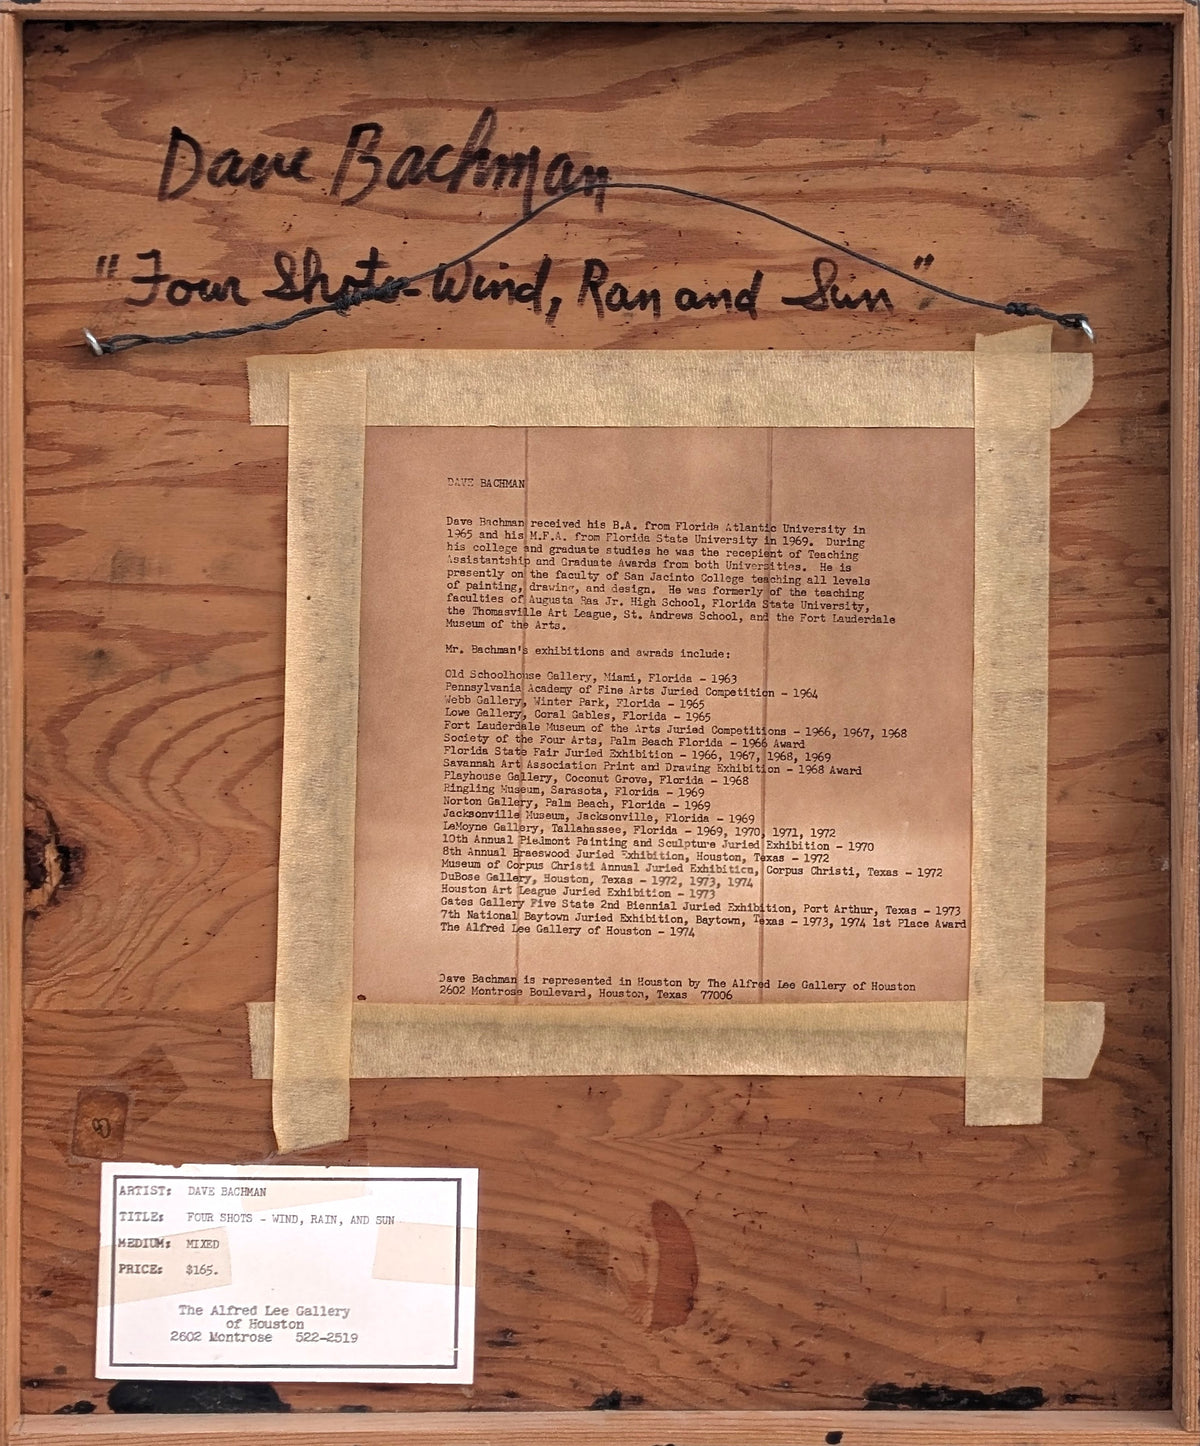 Dave Bachman
"Four Shots-Wind, Ran and Sun"
DAVE BACHMAN
Dave Bachman received his B.A. from Florida Atlantic University in
1965 and his M.F.A. from Florida State University in 1969. During
his college and graduate studies he was the recepient of Teaching
Assistantship and Graduate Awards from both Universities. He is
presently on the faculty of San Jacinto College teaching all levels
of painting, drawing, and design. He was formerly of the teaching
faculties of Augusta Raa Jr. High School, Florida State University,
the Thomasville Art League, St. Andrews School, and the Fort Lauderdale
Museum of the Arts.
Mr. Bachman's exhibitions and awrads include:
Old Schoolhouse Gallery, Miami, Florida - 1963
Pennsylvania Academy of Fine Arts Juried Competition - 1964
Webb Gallery, Winter Park, Florida - 1965
Lowe Gallery, Coral Gables, Florida - 1965
Fort Lauderdale Museum of the Arts Juried Competitions - 1966, 1967, 1968
Society of the Four Arts, Palm Beach Florida - 1966 Award
Florida State Fair Juried Exhibition - 1966, 1967, 1968, 1969
Savannah Art Association Print and Drawing Exhibition - 1968 Award
Playhouse Gallery, Coconut Grove, Florida - 1968
Ringling Museum, Sarasota, Florida - 1969
Norton Gallery, Palm Beach, Florida - 1969
Jacksonville Museum, Jacksonville, Florida - 1969
LeMoyne Gallery, Tallahassee, Florida - 1969, 1970, 1971, 1972
10th Annual Piedmont Painting and Sculpture Juried Exhibition - 1970
8th Annual Braeswood Juried Exhibition, Houston, Texas - 1972
Museum of Corpus Christi Annual Juried Exhibition, Corpus Christi, Texas - 1972
DuBose Gallery, Houston, Texas - 1972, 1973, 1974
Houston Art League Juried Exhibition - 1973
Gates Gallery Five State 2nd Biennial Juried Exhibition, Port Arthur, Texas - 1973
7th National Baytown Juried Exhibition, Baytown, Texas - 1973, 1974 1st Place Award
The Alfred Lee Gallery of Houston - 1974
Dave Bachman is represented in Houston by The Alfred Lee Gallery of Houston
2602 Montrose Boulevard, Houston, Texas 77006
ARTIST: DAVE BACHMAN
TITLE: FOUR SHOTS - WIND, RAIN, AND SUN
MEDIUM: MIXED
PRICE: $165.
The Alfred Lee Gallery
of Houston
2602 Montrose 522-2519